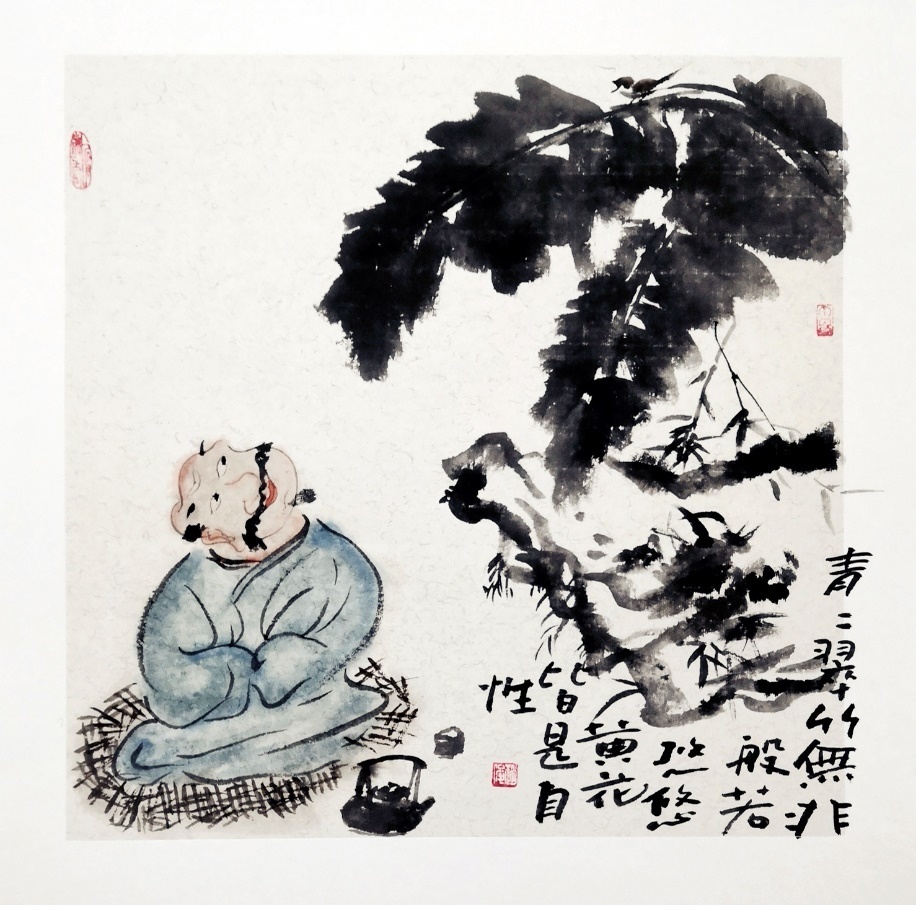 青々翠竹無非
般若
悠悠
黄花
皆是自
性